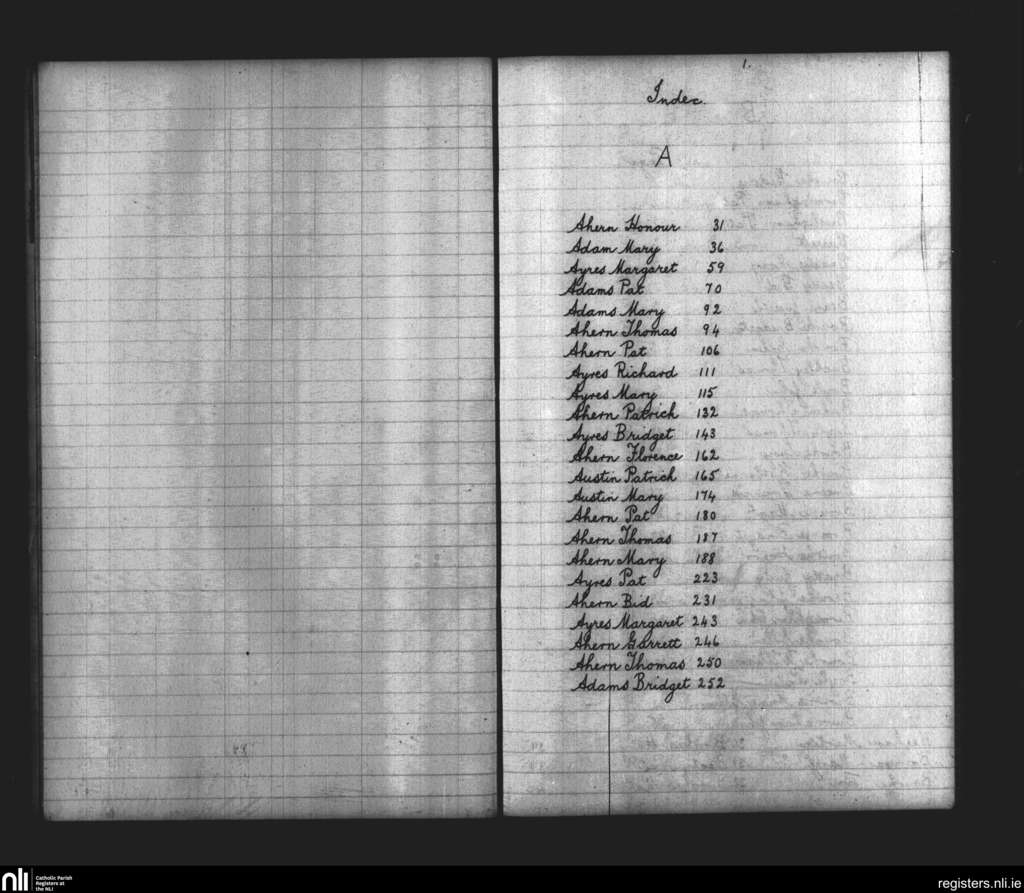 1.
Index.
A
Ahern Honour 31
Adam Mary 36
Ayres Margaret 59
Adams Pat 70
Adams Mary 92
Ahern Thomas 94
Ahern Pat 106
Ayres Richard 111
Ayres Mary 115
Ahern Patrick 132
Ayres Bridget 143
Ahern Florence 162
Austin Patrick 165
Austin Mary 174
Ahern Pat 180
Ahern Thomas 187
Ahern Mary 188
Ayres Pat 223
Ahern Bid 231
Ayres Margaret 243
Ahern Garrett 246
Ahern Thomas 250
Adams Bridget 252
nli
Catholic Parish
Registers at
the NLI
registers.nli.ie